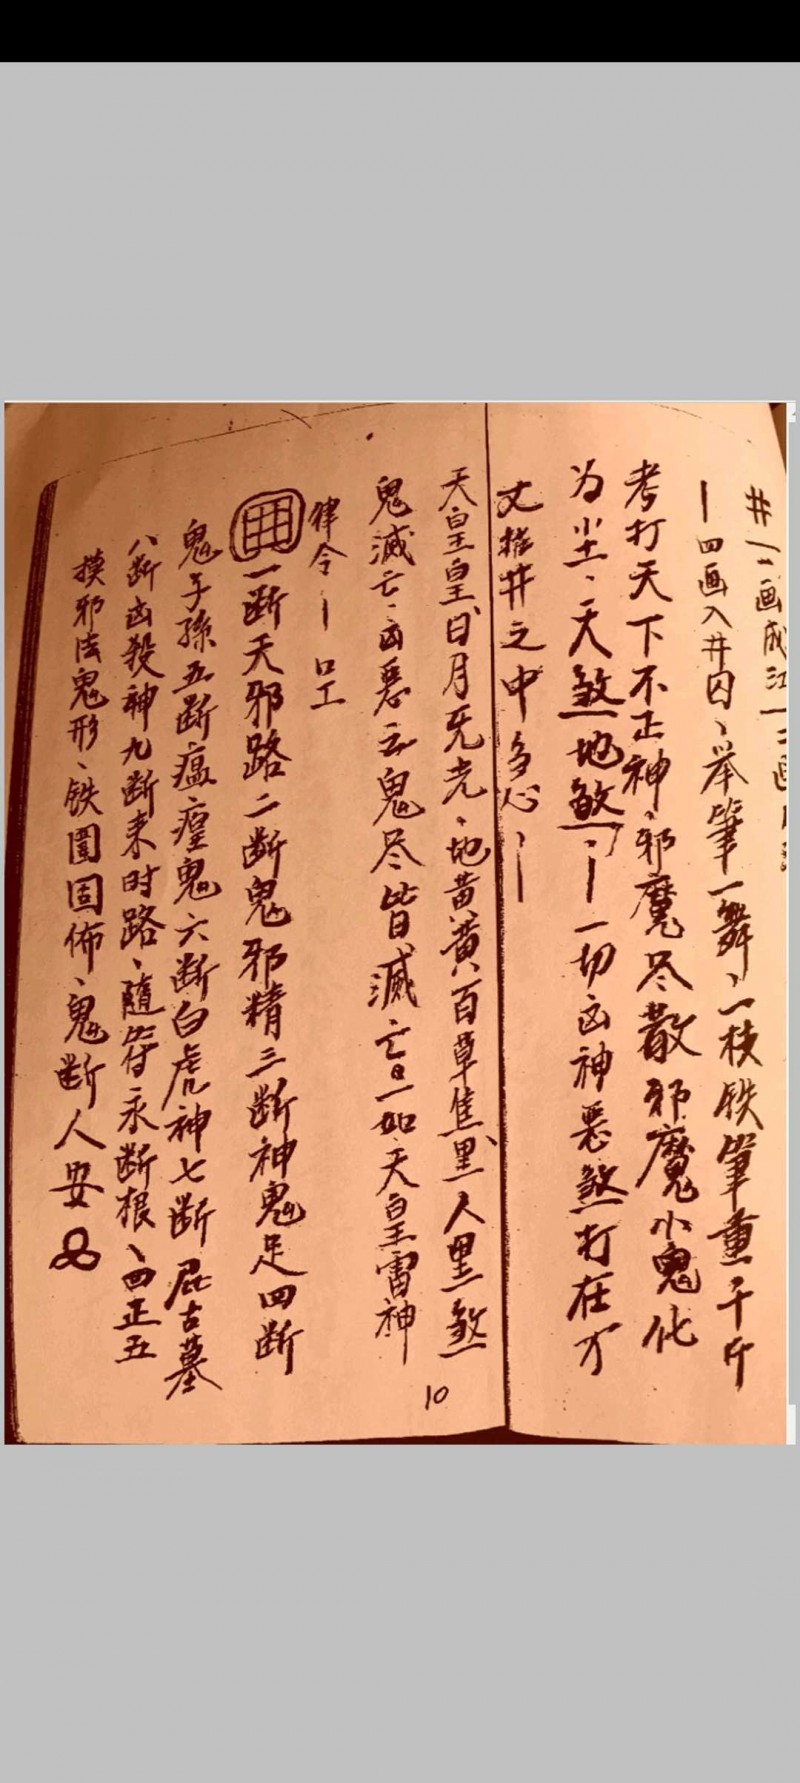 井一一画成江一二画
一四画入井囚、举筆一舞、一枝铁筆重千斤
考打天下不正神、邪魔尽散邪魔小鬼化
为尘、天煞地煞、一一切凶神恶煞打在万
丈推井之中多心一
天皇皇日月无光、地黄黄百草焦黑人黑煞
鬼滅亡、凶恶云鬼尽皆滅亡。一如天皇雷神
律令一口工
一断天邪路二断鬼邪精三断神鬼足四断
鬼子孫五断瘟、瘴鬼六断白虎神七断屁古墓
八断凶殺神九断来时路、隨符永断根、四正五
摸邪法鬼形、铁圍固佈、鬼断人安
10